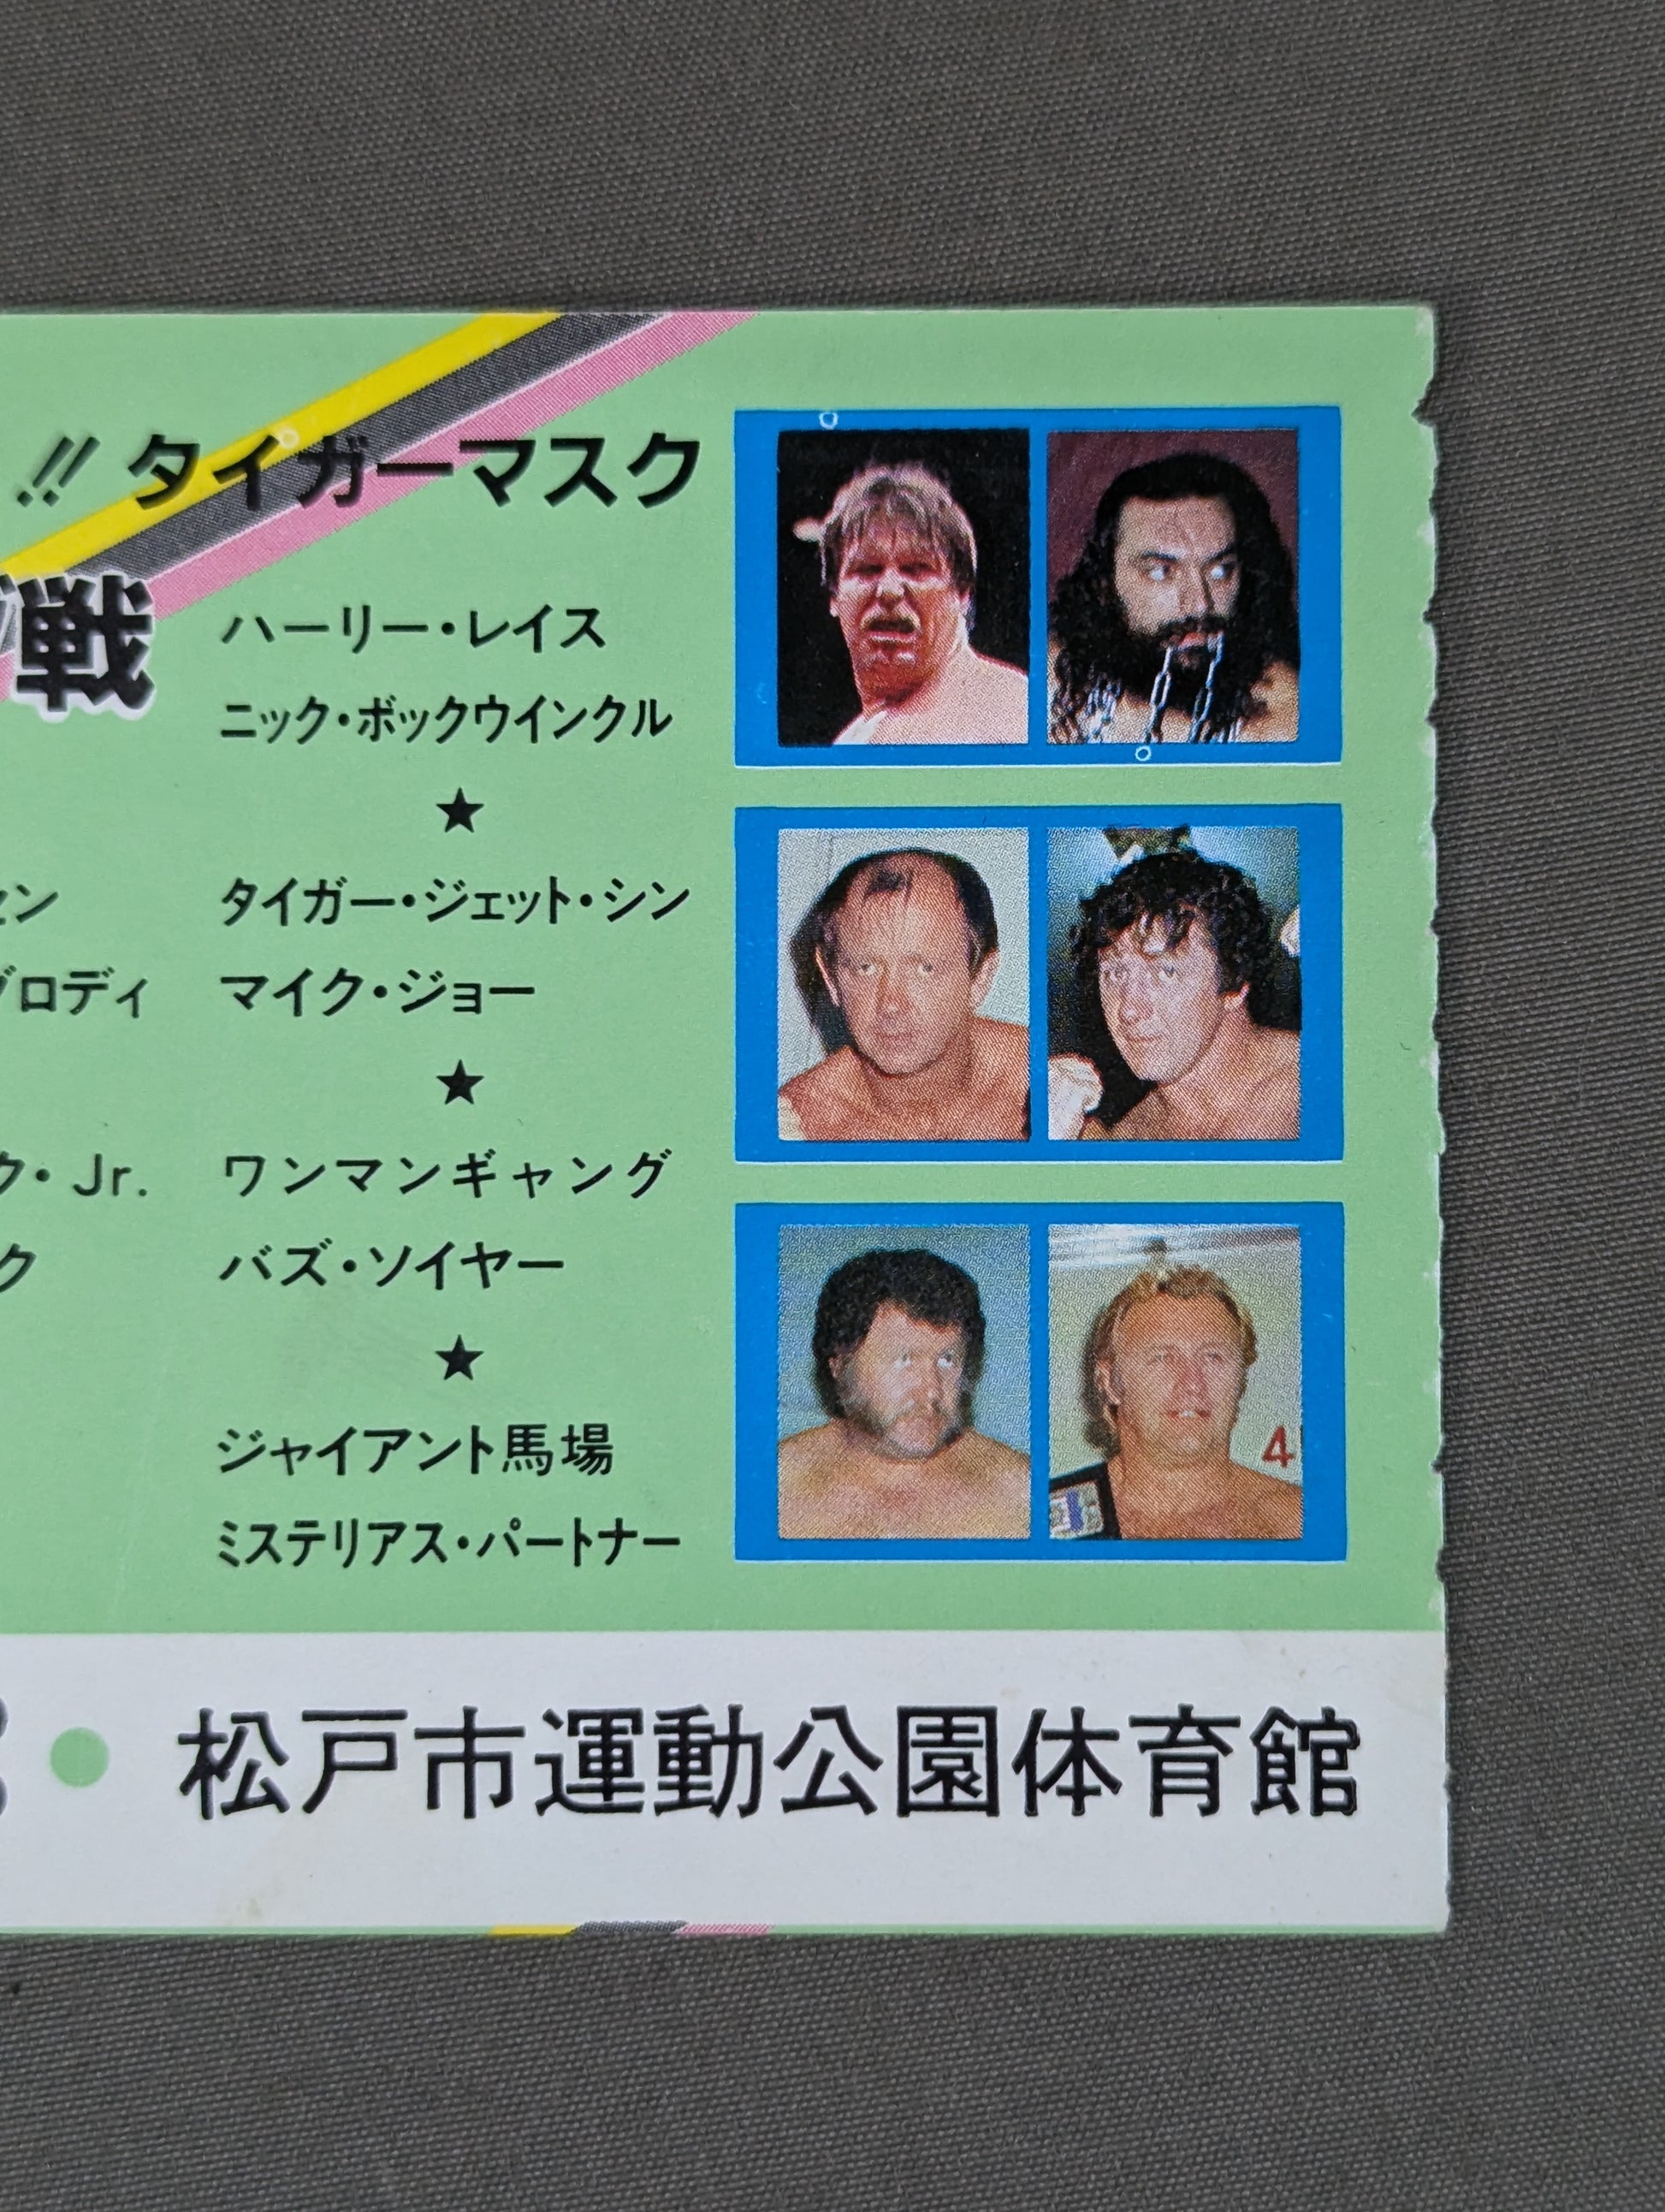 !! タイガーマスク
戦
ハーリー・レイス
ニック・ボックウインクル
★
セン タイガー・ジェット・シン
ブロディ マイク・ジョー
★
ク・Jr. ワンマンギャング
ク バズ・ソイヤー
★
ジャイアント馬場
ミステリアス・パートナー
4
松戸市運動公園体育館